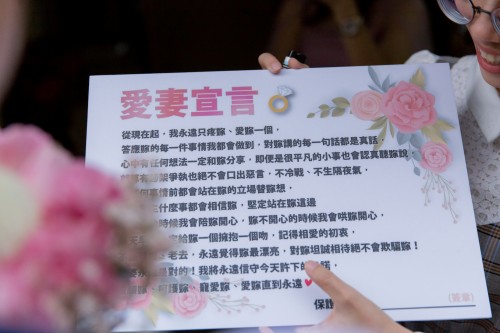 愛妻宣言
從現在起,我永遠只疼嫁、愛嫁一個,
答應嫁的每一件事情我都會做到,對嫁講的每一句話都是真話,
心中有任何想法一定和嫁分享,即便是很平凡的小事也會認真聽嫁說,
爭執也絕不會口出惡言,不冷戰、不生隔夜氣,
事情前都會站在嫁的立場替嫁想,
什麼事都會相信嫁,堅定站在嫁這邊
時候我會陪嫁開心,嫁不開心的時候我會哄嫁開心
給嫁一個擁抱一個吻,記得相愛的初衷,
老去,永遠覺得嫁最漂亮,對嫁坦誠相待絕不會欺騙嫁!
是對的!我將永遠信守今天許下的
嫁、寵愛嫁、愛嫁直到永遠
(簽章)